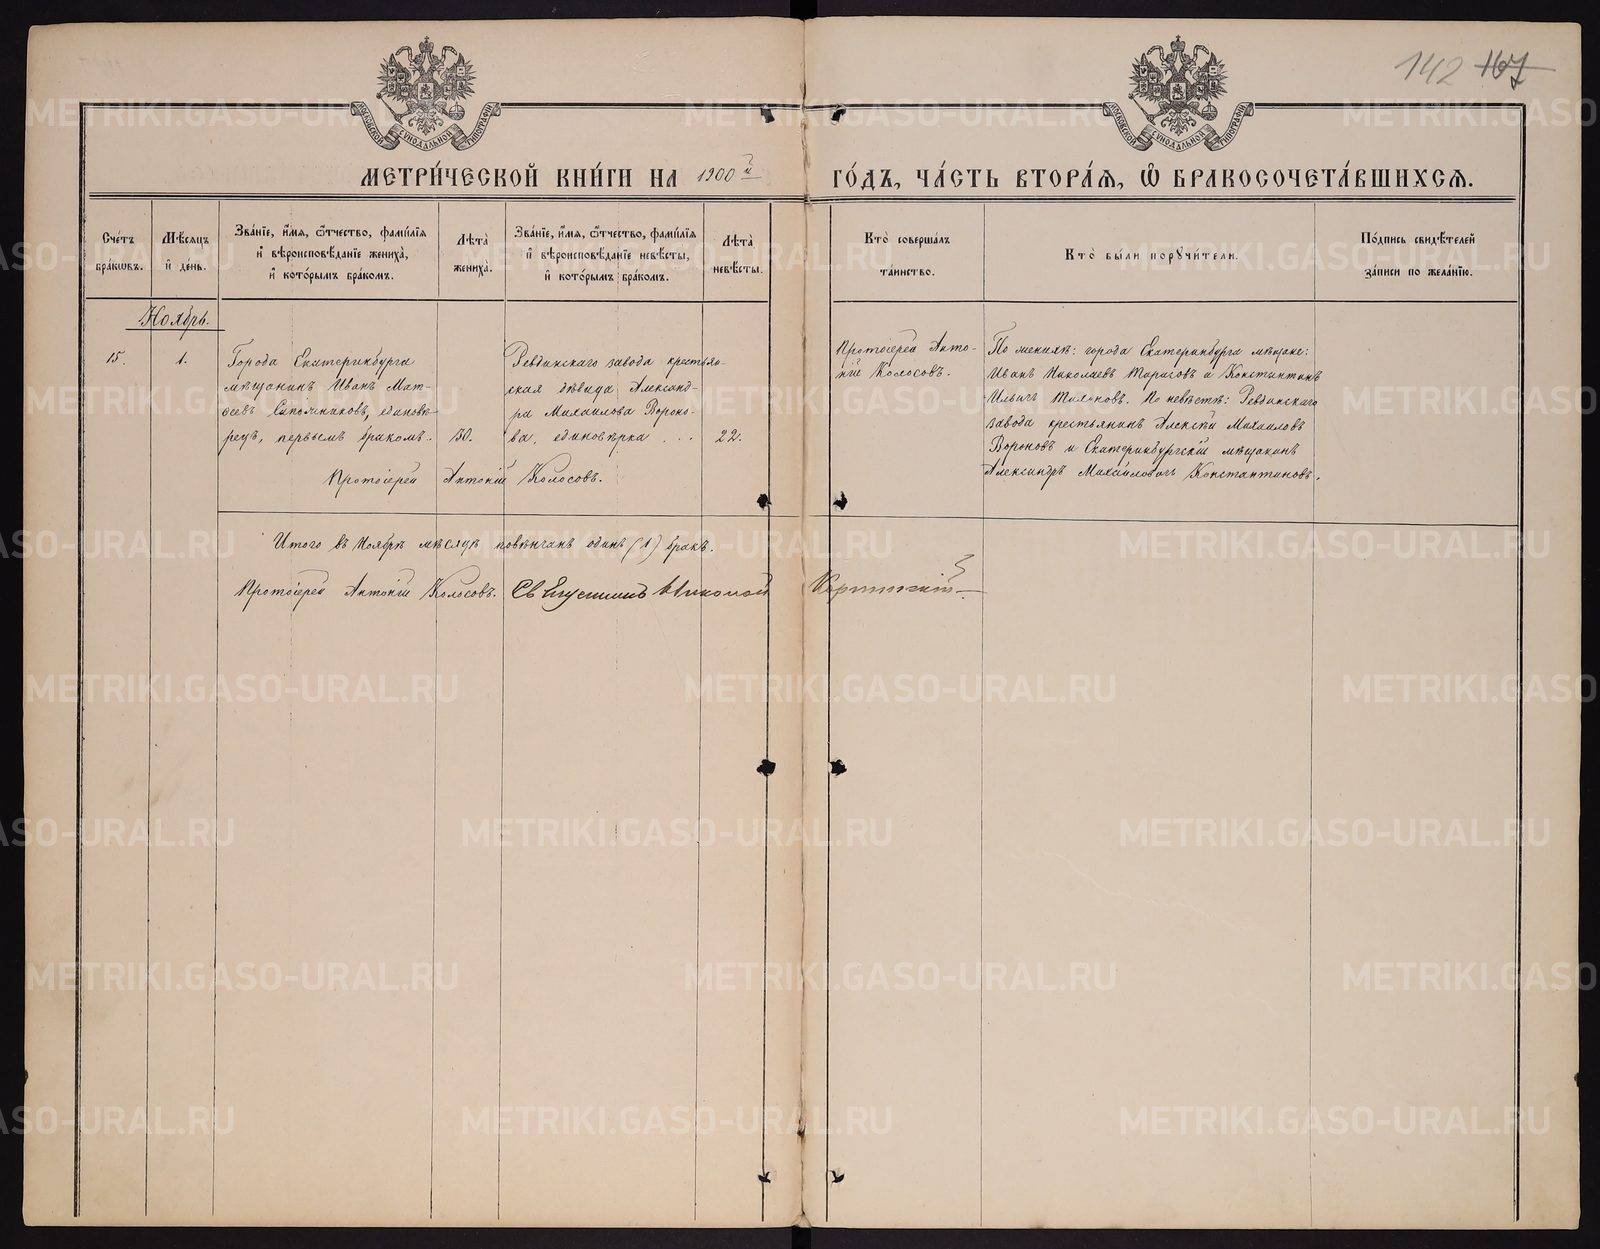 142 167
МОСКОВСКОЙ СѴНОДАЛЬНОЙ ТИПОГРАФІИ
МОСКОВСКОЙ СѴНОДАЛЬНОЙ ТИПОГРАФІИ
МЕТРИ́ЧЕСКОЙ КНИ́ГИ НА 1900й ГО́ДЪ, ЧА́СТЬ ВТОРА́Ѧ, Ѽ БРАКОСОЧЕТА́ВШИХСѦ.
Сче́тъ
бра́кѡвъ.
Мѣ́сяцъ
и҆ де́нь.
Зва́нїе, и҆́мѧ, ѻ҆́тчество, фами́лїѧ
и҆ вѣроисповѣ́данїе жениха̀,
и҆ кото́рымъ бра́комъ.
Лѣ́та̀
жениха̀.
Зва́нїе, и҆́мѧ, ѻ҆́тчество, фами́лїѧ
и҆ вѣроисповѣ́данїе невѣ́сты,
и҆ кото́рымъ бра́комъ.
Лѣ́та̀
невѣ́сты.
Кто̀ соверша́лъ
та́инство.
Кто̀ бы́ли порꙋчи́тели.
По́дпись свидѣ́телей
за́писи по жела́нїю.
Ноябрь.
15. 1.
Города Екатеринбурга
мѣщанинъ Иванъ Мат-
ѳеевъ Сапожниковъ, единовѣ
рецъ, первымъ бракомъ. 30.
Ревдинскаго завода крестья-
ская дѣвица Александ-
ра Михаилова Вороно-
ва, единовѣрка ... 22.
Протоіерей Анто-
ній Колосовъ.
По женихѣ: города Екатеринбурга мѣщане:
Иванъ Николаевъ Тарасовъ и Константинъ
Ильичъ Тихоновъ. По невѣстѣ: Ревдинскаго
завода крестьянинъ Алексѣй Михаиловъ
Вороновъ и Екатеринбургскій мѣщанинъ
Александръ Михаиловичъ Константиновъ.
Протоіерей Антоній Колосовъ.
Итого въ Ноябрѣ мѣсяцѣ повѣнчанъ одинъ (1) бракъ.
Протоіерей Антоній Колосовъ. Николай
METRIKI.GASO-URAL.RU